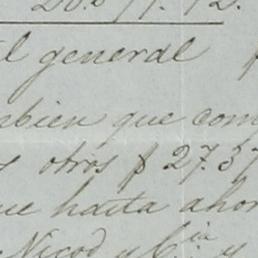 l general
mbien que com
otros $ 27.37
ue hasta ahor
Nicod y C.ia y